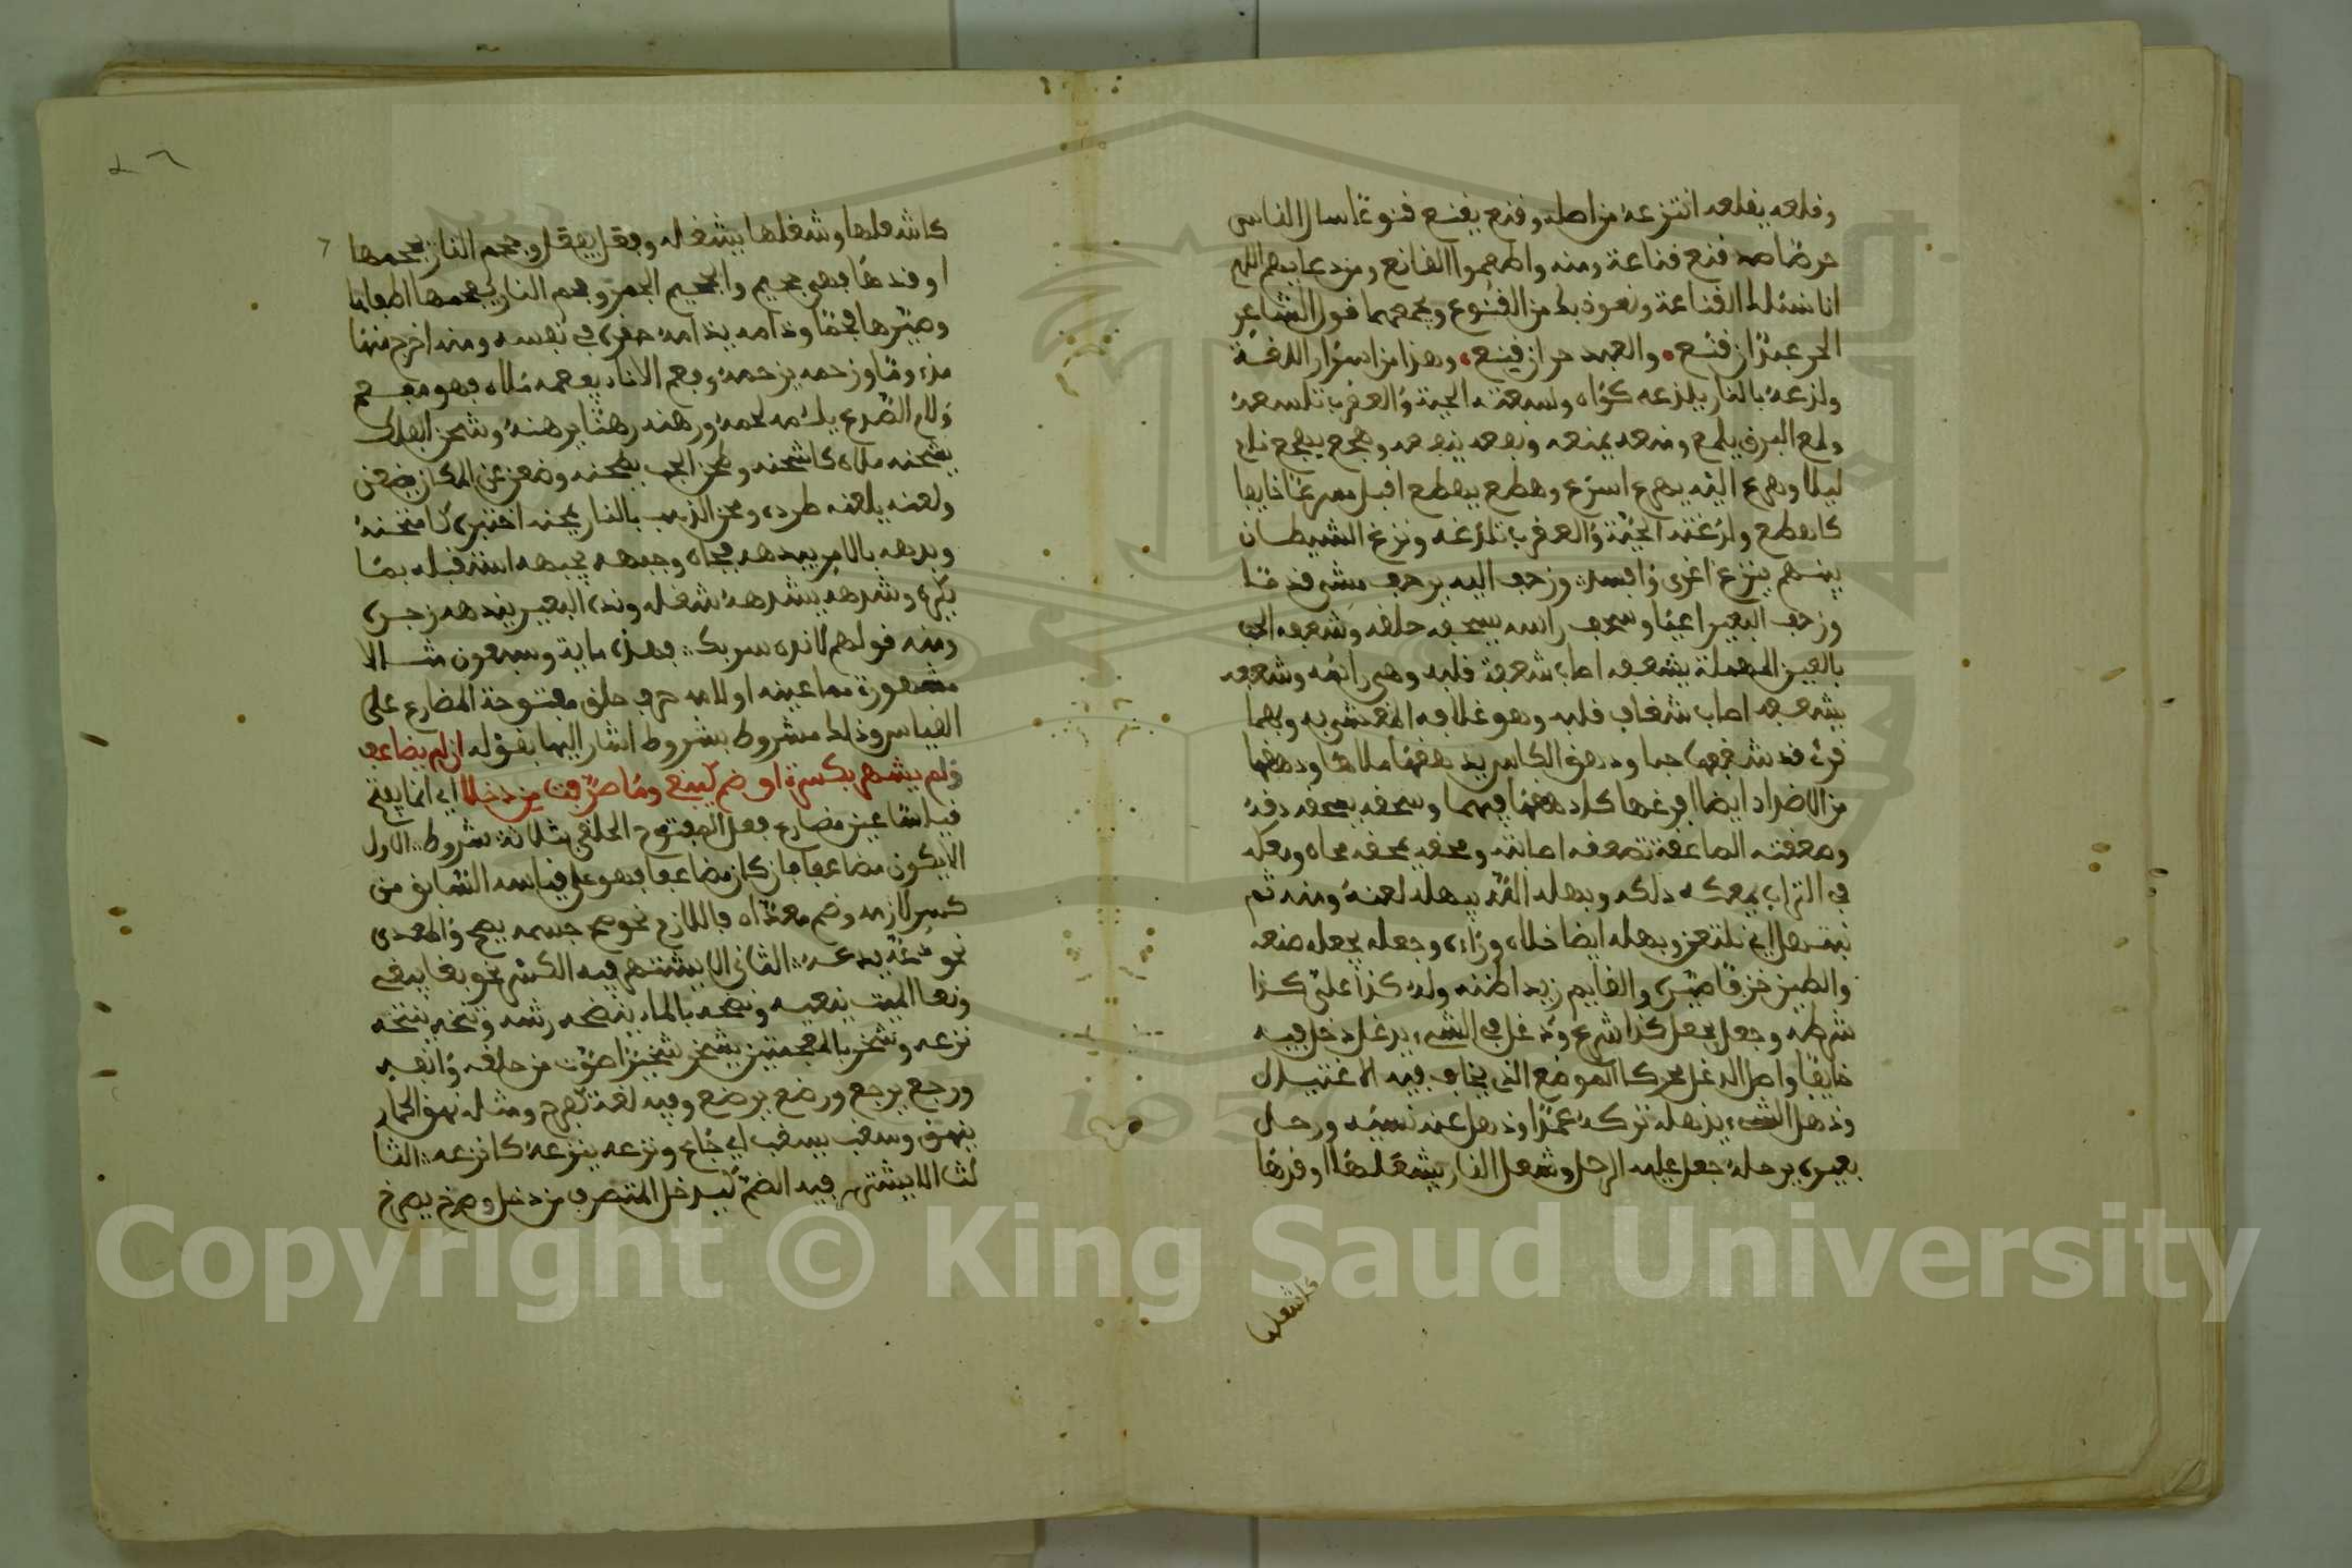 وقلعه يقلعه انتزعه من اصله وقنع يقنع قنوعا سال الناس
حرضا ضد قنع قناعة ومنه واطعموا القانع ومن دعايهم اللهم
انا نسئلك القناعة ونعوذ بك من القنوع ويجمعهما قول الشاعر
الحر عبد ان قنع والعبد حر ان قنع وهذا من اسرار اللغة
ولذعه بالنار يلذعه كواه ولسعته الحية والعقرب تلسعه
ولمع البرق يلمع ومنعه يمنعه ونفعه ينفعه وهجع يهجع نام
ليلا وهرع اليه يهرع اسرع وهطع يهطع اقبل مسرعا خايفا
كاهطع ولدغته الحية والعقرب تلدغه ونزغ الشيطان
بينهم ينزغ اغرى وافسد وزحف اليه يزحف مشى قدما
وزحف البعير اعيا وسحف راسه يسحفه حلقه وشعفه الحب
بالعين المهملة يشعفه اصاب شعفة قلبه وهي راسه وشغفه
يشغفه اصاب شغاف قلبه وهو غلافه المغشى به وبهما
قرئ قد شغفها حبا ودهق الكاس يدهقها ملاها ودهقها
من الاضداد ايضا افرغها كادهقها فيهما وسحقه يسحقه دقه
وصعقته الصاعقة تصعقه اصابته ومحقه يمحقه محاه ومعكه
في التراب يمعكه دلكه وبهله الله يبهله لعنه ومنه ثم
نبتهل اي نلتعن وبهله ايضا خلاه وراءه وجعله يجعله صنعه
والطين خزفا صيره والقايم زيدا ظنه وله كذا على كذا
شرطه وجعل يفعل كذا شرع ودغل في الشيء يدغل دخل فيه
خايفا واصل الدغل محركا الموضع الذي يخاف فيه الاغتيال
وذهل الشيء يذهله تركه عمدا وذهل عنه نسيه ورحل
بعيره يرحله جعل عليه الرحل وشعل النار يشعلها اوقدها
كاشعلها
كاشعلها وشغلها يشغله وفغر يفغر وجحم النار يجحمها
اوقدها فهي جحيم والجحيم الجمر وفحم النار يفحمها اطفاها
وصيرها فحما وذامه يذامه حقره في نفسه ومنه اخرج منها
مذءوما وزحمه يزحمه وفعم الاناء يفعمه ملاه فهو مفعم
ولام الصدع يلئمه لحمه ورهنه رهنا يرهنه وشحن الفلك
يشحنه ملاه كاشحنه وطحن الحب يطحنه وضعن عن المكان يضعن
ولعنه يلعنه طرده ومحن الذهب بالنار يمحنه اختبره كامتحنه
وبدهه بالامر يبدهه فجاه وجبهه يجبهه استقبله بما
يكره وشدهه يشدهه شغله ونده البعير يندهه زجره
ومنه قولهم لا انده سربك فهذه ماية وسبعون مثالا
مشهورة مما عينه او لامه حرف حلق مفتوحة المضارع على
القياس وذلك مشروط بشروط اشار اليها بقوله ان لم يضاعف
ولم يشهر بكسرة او ضم كيبغي وما صرفت من دخلا اي انما يفتح
قياسا عين مضارع فعل المفتوح الحلقي بثلاثة شروط الاول
الا يكون مضاعفا فان كان مضاعفا فهو على قياسه السابق من
كسر لازمه وضم معداه فاللازم نحو صح جسمه يصح والمعدى
نحو دعه يدعه الثاني الا يشتهر فيه الكسر نحو بغا يبغي
ونعا الميت ينعيه ونضحه بالماء ينضحه رشه ونتخه ينتخه
نزعه وشخر بالمعجمتين يشخر شخيرا صوت من حلقه وانفه
ورجع يرجع ورضع يرضع وفيه لغة كفرح ومثله نهق الحمار
ينهق وسغب يسغب اي جاع ونزعه ينزعه كانزعه الثا
لث الا يشتهر فيه الضم كيدخل المتصرف من دخل وصرخ يصرخ
Copyright © King Saud University
1957